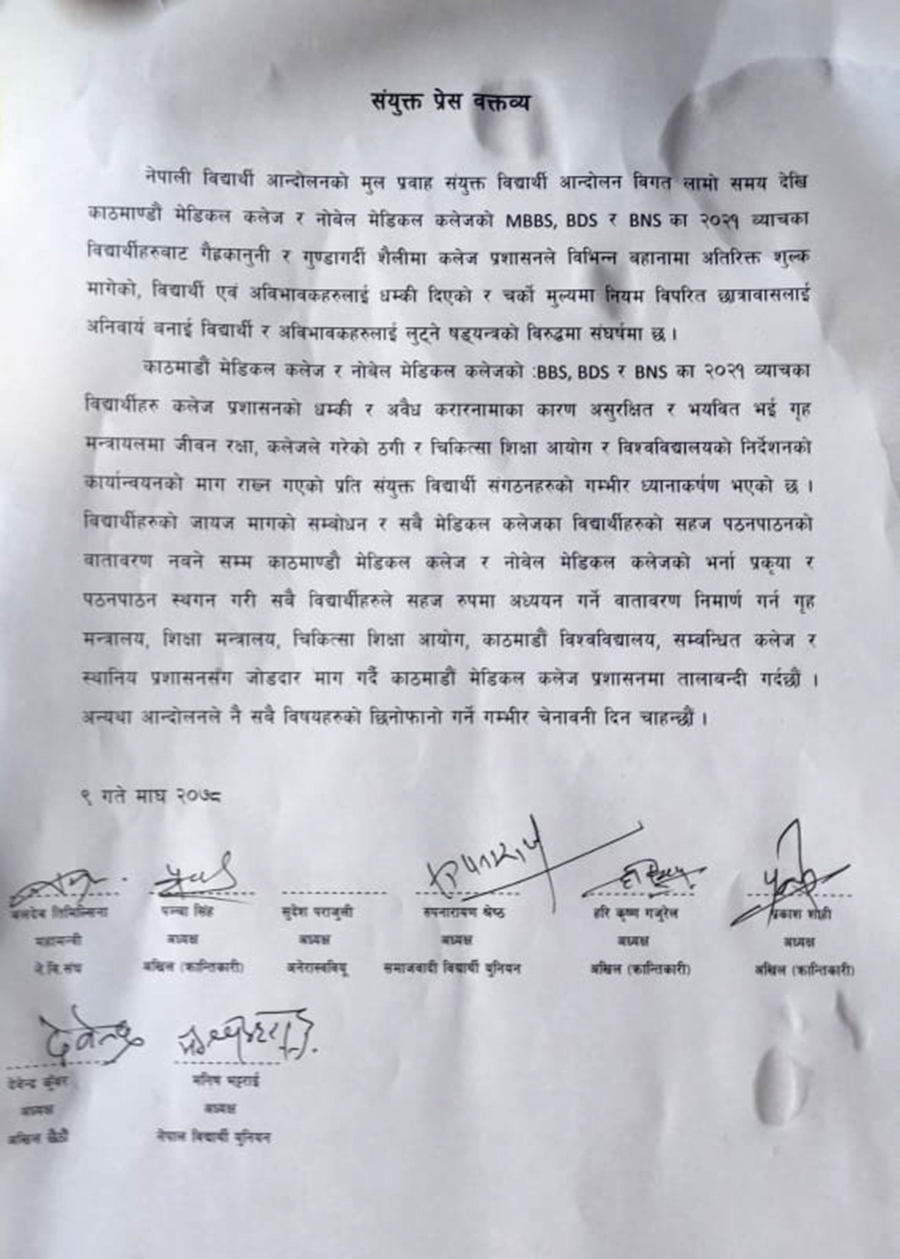 संयुक्त प्रेस वक्तव्य
नेपाली विद्यार्थी आन्दोलनको मुल प्रवाह संयुक्त विद्यार्थी आन्दोलन विगत लामो समय देखि
काठमाण्डौ मेडिकल कलेज र नोबेल मेडिकल कलेजको MBBS, BDS र BNS का २०२१ व्याचका
विद्यार्थीहरुबाट गैह्रकानुनी र गुण्डागर्दी शैलीमा कलेज प्रशासनले विभिन्न बहानामा अतिरिक्त शुल्क
मागेको, विद्यार्थी एवं अविभावकहरुलाई धम्की दिएको र चर्को मुल्यमा नियम विपरित छात्रावासलाई
अनिवार्य बनाई विद्यार्थी र अविभावकहरुलाई लुट्ने षड्यन्त्रको विरुद्धमा संघर्षमा छ ।
काठमाडौं मेडिकल कलेज र नोबेल मेडिकल कलेजको :BBS, BDS र BNS का २०२१ व्याचका
विद्यार्थीहरु कलेज प्रशासनको धम्की र अवैध करारनामाका कारण असुरक्षित र भयवित भई गृह
मन्त्रायलमा जीवन रक्षा, कलेजले गरेको ठगी र चिकित्सा शिक्षा आयोग र विश्वविद्यालयको निर्देशनको
कार्यान्वयनको माग राख्न गएको प्रति संयुक्त विद्यार्थी संगठनहरुको गम्भीर ध्यानाकर्षण भएको छ ।
विद्यार्थीहरुको जायज मागको सम्बोधन र सबै मेडिकल कलेजका विद्यार्थीहरुको सहज पठनपाठनको
वातावरण नबने सम्म काठमाण्डौ मेडिकल कलेज र नोबेल मेडिकल कलेजको भर्ना प्रकृया र
पठनपाठन स्थगन गरी सबै विद्यार्थीहरुले सहज रुपमा अध्ययन गर्ने वातावरण निमार्ण गर्न गृह
मन्त्रालय, शिक्षा मन्त्रालय, चिकित्सा शिक्षा आयोग, काठमाडौं विश्वविद्यालय, सम्बन्धित कलेज र
स्थानिय प्रशासनसँग जोडदार माग गर्दै काठमाडौं मेडिकल कलेज प्रशासनमा तालाबन्दी गर्दछौं ।
अन्यथा आन्दोलनले नै सबै विषयहरुको छिनोफानो गर्ने गम्भीर चेनावनी दिन चाहन्छौं ।
९ गते माघ २०७८
बलदेव तिमिल्सिना पञ्चा सिंह सुदेश पराजुली रुपनारायण श्रेष्ठ हरि कृष्ण गजुरेल प्रकाश शाही
महामन्त्री अध्यक्ष अध्यक्ष अध्यक्ष अध्यक्ष अध्यक्ष
ने.वि.संघ अखिल (क्रान्तिकारी) अनेरास्ववियू समाजवादी विद्यार्थी युनियन अखिल (क्रान्तिकारी) अखिल (क्रान्तिकारी)
देवेन्द्र
देवेन्द्र कुँवर मनिष भट्टराई
अध्यक्ष अध्यक्ष
अखिल छैठौं नेपाल विद्यार्थी युनियन